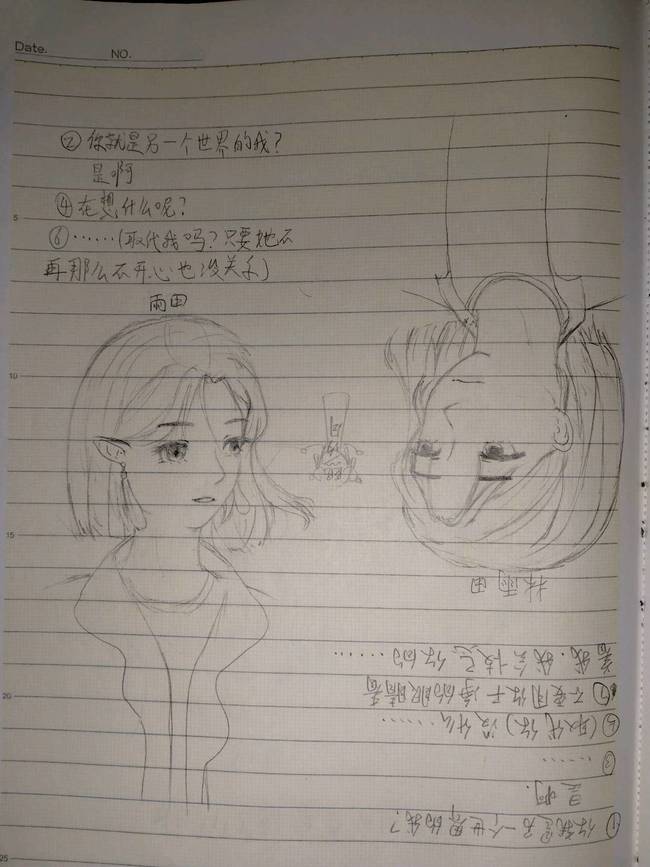 Date.
NO.
②你就是另一个世界的我？
是啊
④在想什么呢？
⑥……(取代我吗？只要她不
再那么不开心也没关系)
雨田
5
10
15
20
25
林雨田
①你就是另一个世界的我？
是啊.
③……
⑤(取代你)没什么……
⑦不要用你干净的眼睛看
着我.我会